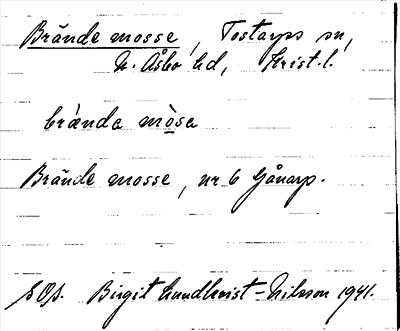 Brände mosse, Tostarps sn,
N. Åsbo hd, Krist. l.
brȧ̀nda mò̱sa
Brände mosse, nr 6 Gånarp.
SOÅ. Birgit Lundkvist-Nilsson 1941.